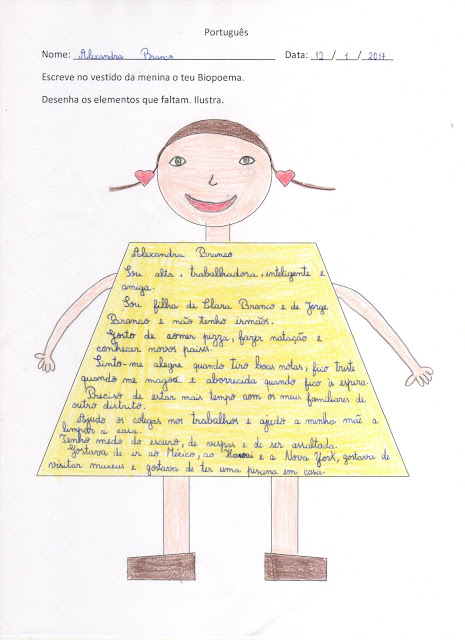 Português
Nome: Alexandra Branco Data: 12 / 1 / 2017
Escreve no vestido da menina o teu Biopoema.
Desenha os elementos que faltam. Ilustra.
Alexandra Branco
Sou alta, trabalhadora, inteligente e
amiga.
Sou filha de Clara Branco e de Jorge
Branco e não tenho irmãos.
Gosto de comer pizza, fazer natação e
conhecer novos países.
Sinto-me alegre quando tiro boas notas, fico triste
quando me magoo e aborrecida quando fico à espera.
Preciso de estar mais tempo com os meus familiares de
outro distrito.
Ajudo os colegas nos trabalhos e ajudo a minha mãe a
limpar a casa.
Tenho medo do escuro, de vespas e de ser assaltada.
Gostava de ir ao México, ao Hawai e a Nova York, gostava de
visitar museus e gostava de ter uma piscina em casa.